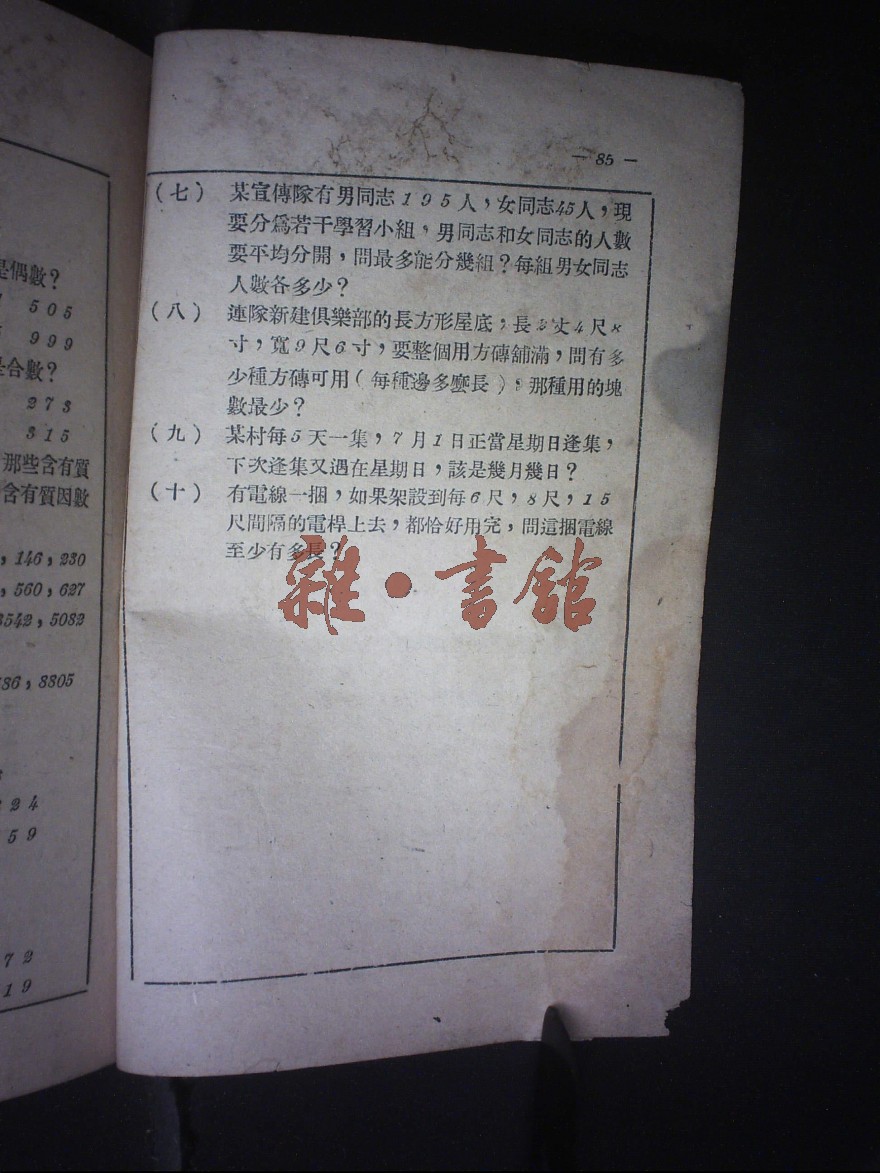 是偶數？
505
999
是合數？
273
315
那些含有質
含有質因數
，146，230
，560，627
3542，5082
36，8805
24
59
72
19
— 85 —
（七） 某宣傳隊有男同志195人，女同志45人，現
要分爲若干學習小組，男同志和女同志的人數
要平均分開，問最多能分幾組？每組男女同志
人數各多少？
（八） 連隊新建俱樂部的長方形屋底，長 丈4尺8
寸，寬9尺6寸，要整個用方磚舖滿，問有多
少種方磚可用（每種邊多麼長），那種用的塊
數最少？
（九） 某村每5天一集，7月1日正當星期日逢集，
下次逢集又遇在星期日，該是幾月幾日？
（十） 有電線一捆，如果架設到每6尺，8尺，15
尺間隔的電桿上去，都恰好用完，問這捆電線
至少有多長？
雜·書館